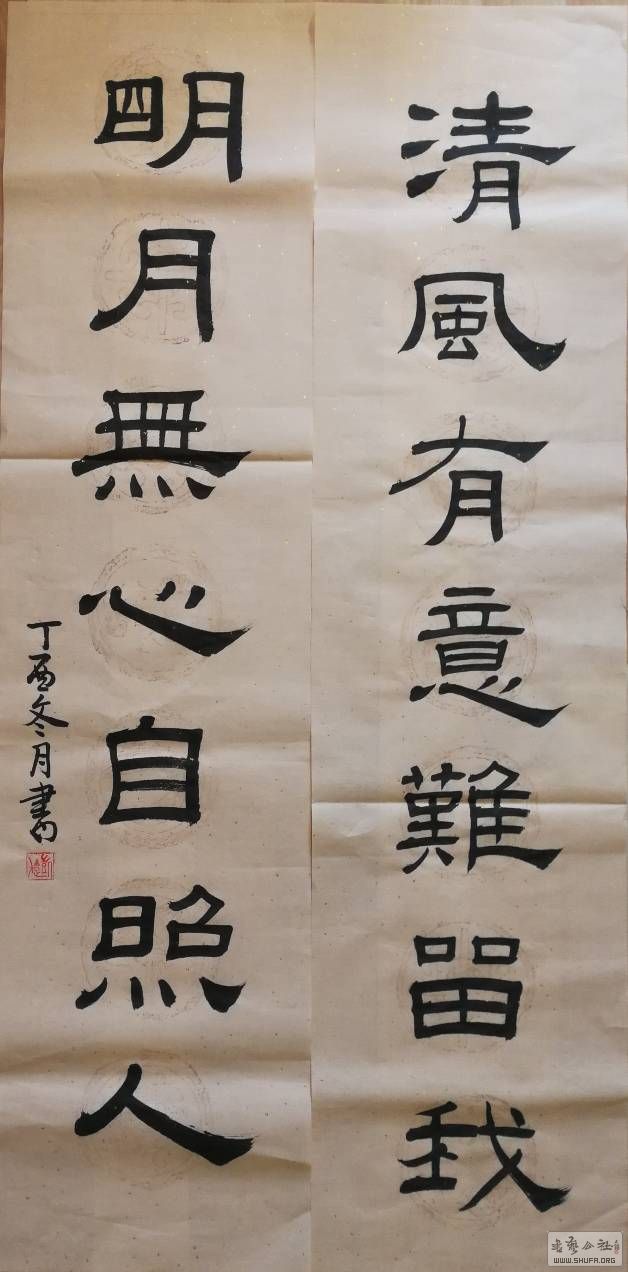 清風有意難留我
明月無心自照人
丁酉冬月書
WWW.SHUFA.ORG